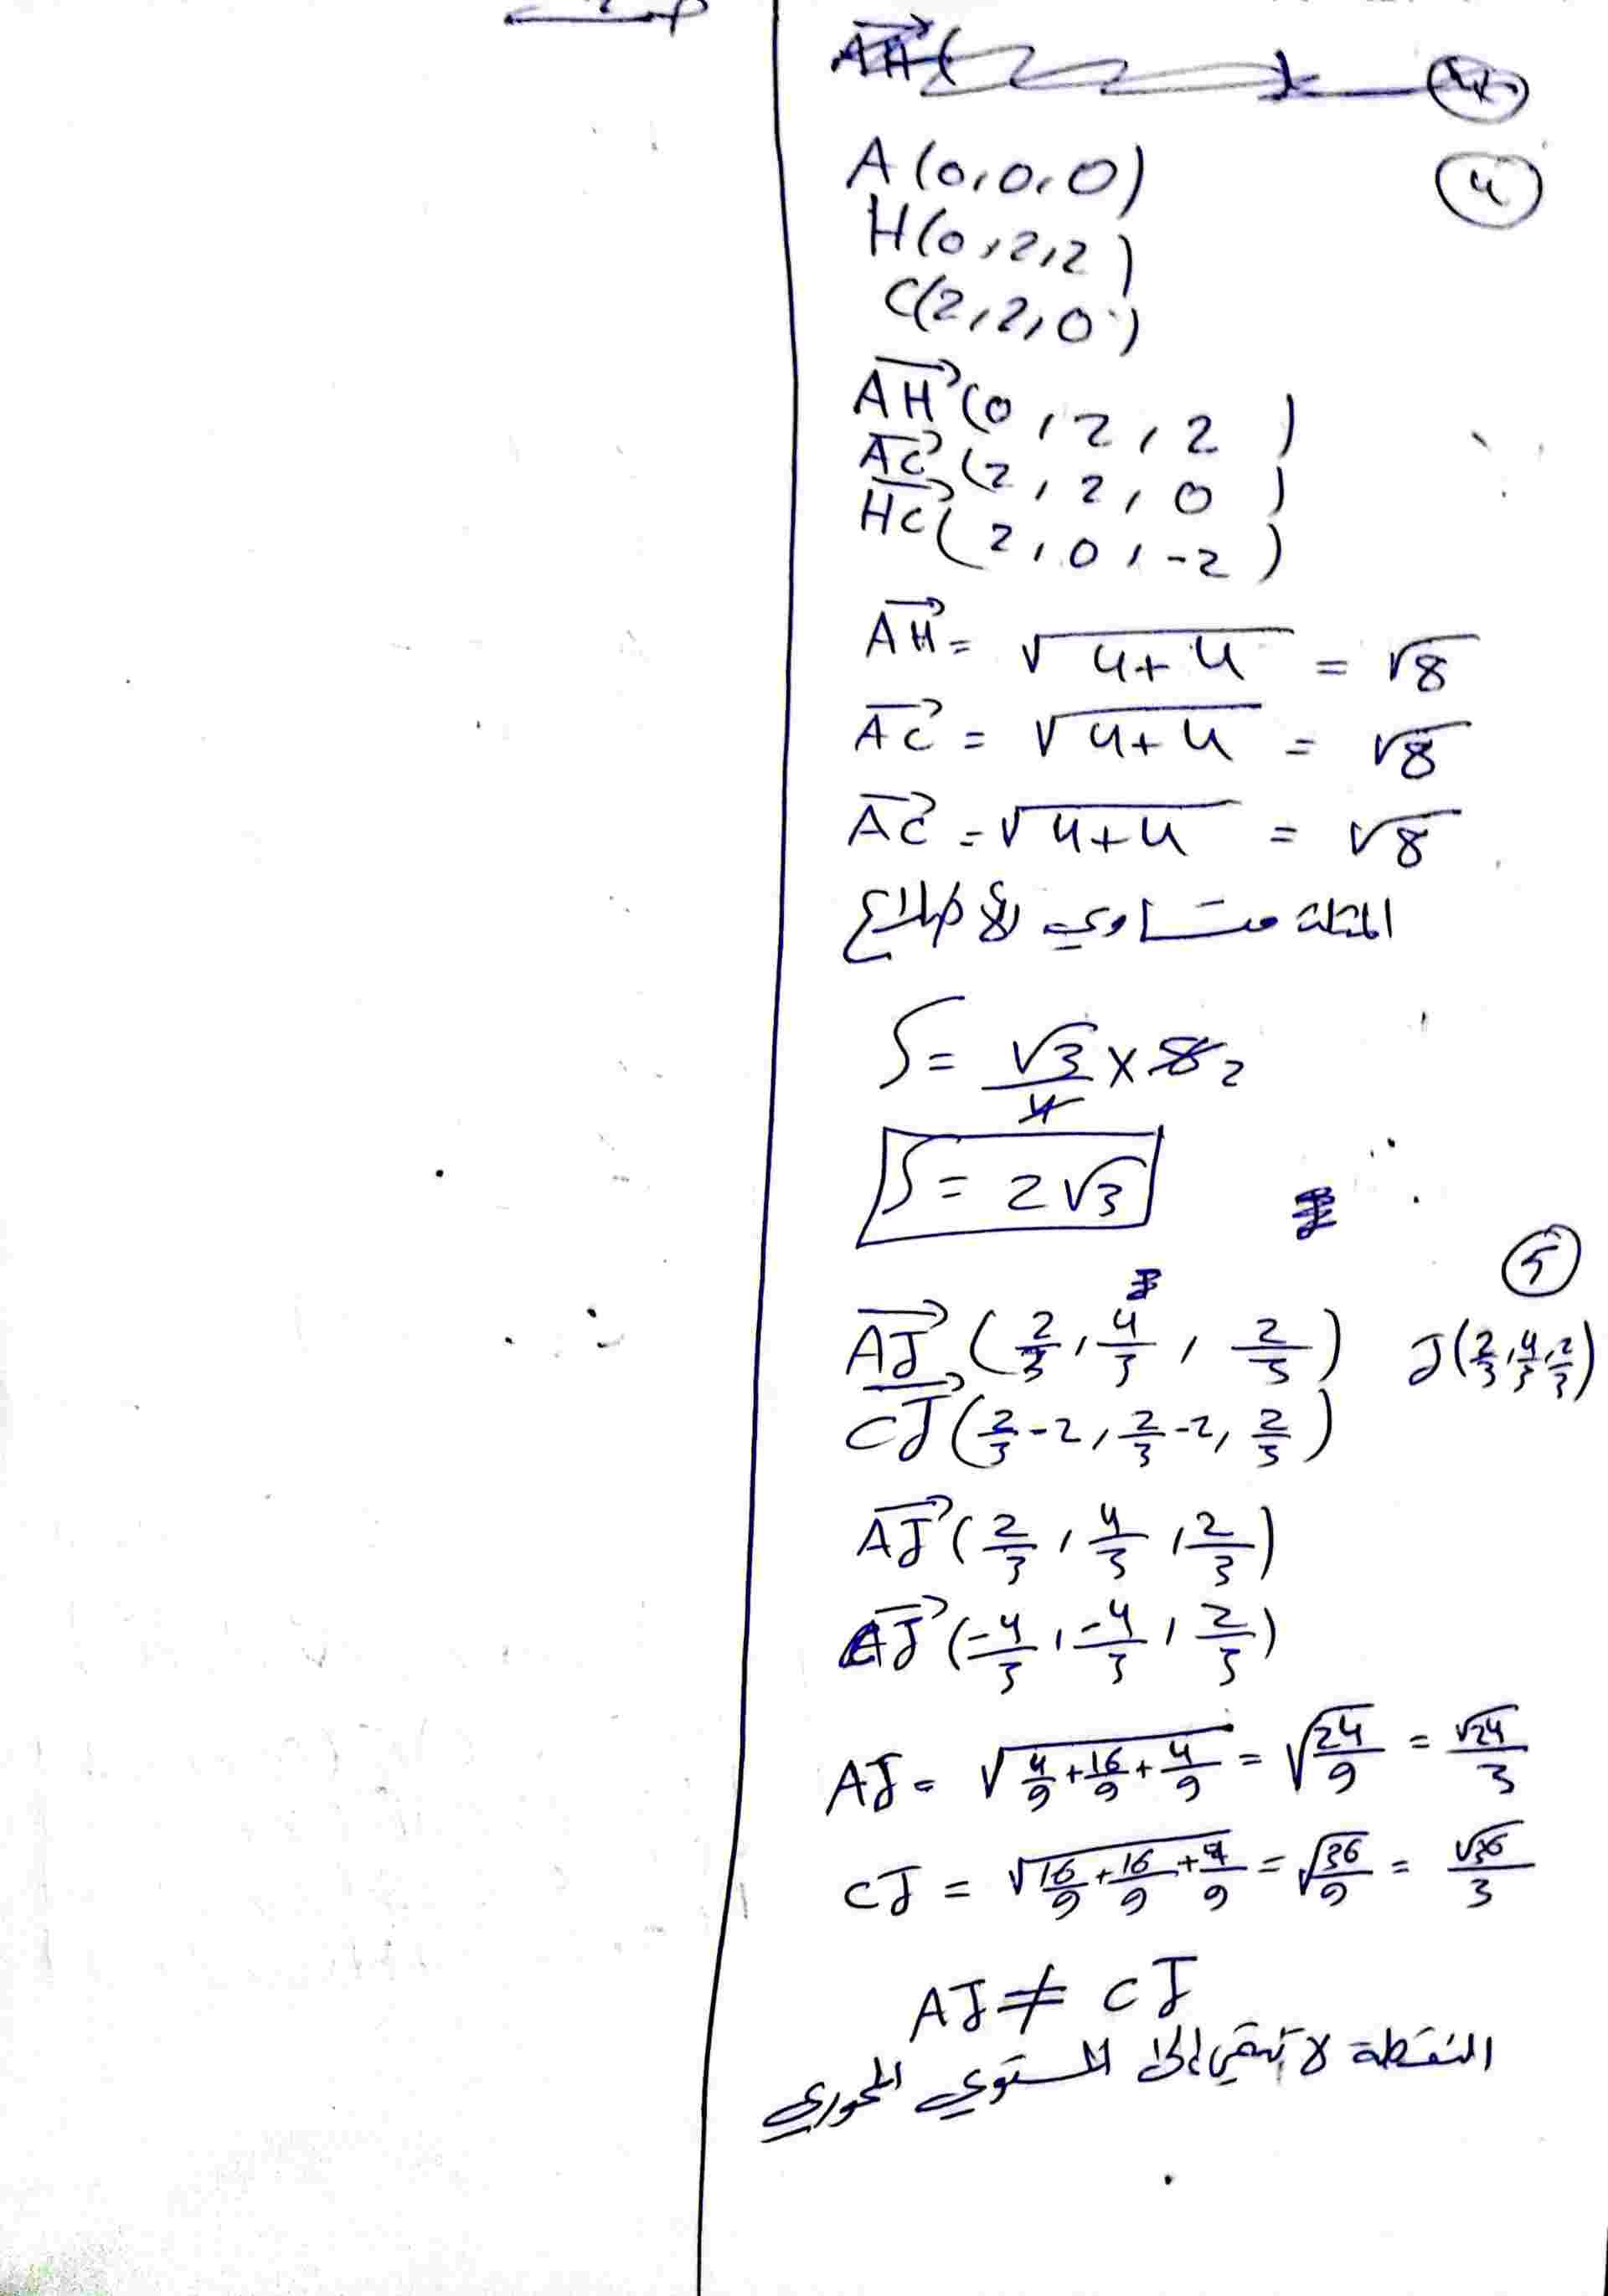 ④
A(0,0,0)
H(0,2,2)
C(2,2,0)
AH→(0, 2, 2)
AC→(2, 2, 0)
HC→(2, 0, -2)
AH→ = √(4+4) = √8
AC→ = √(4+4) = √8
AC→ = √(4+4) = √8
المثلث متساوي الأضلاع
S = √3/4 × 8 2
S = 2√3
⑤
AJ→(2/3, 4/3, 2/3) J(2/3, 4/3, 2/3)
CJ→(2/3-2, 2/3-2, 2/3)
AJ→(2/3, 4/3, 2/3)
CJ→(-4/3, -4/3, 2/3)
AJ = √(4/9+16/9+4/9) = √(24/9) = √24/3
CJ = √(16/9+16/9+4/9) = √(36/9) = √36/3
AJ ≠ CJ
النقطة لا تنتمي إلى المستوي المحوري